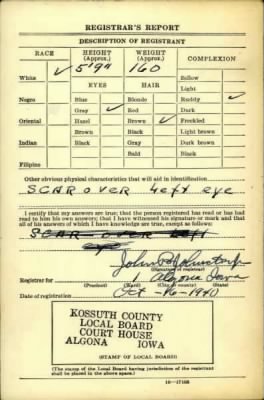 REGISTRAR'S REPORT
DESCRIPTION OF REGISTRANT
RACE HEIGHT (Approx.) WEIGHT (Approx.) COMPLEXION
White ✓ 5'9" 160 Sallow
EYES HAIR Light
Negro Blue Blonde Ruddy ✓
Gray ✓ Red Dark
Oriental Hazel Brown ✓ Freckled
Brown Black Light brown
Indian Black Gray Dark brown
Bald Black
Filipino
Other obvious physical characteristics that will aid in identification
SCAR OVER left eye
I certify that my answers are true; that the person registered has read or has had
read to him his own answers; that I have witnessed his signature or mark and that
all of his answers of which I have knowledge are true, except as follows:
SCAR OVER left
eye
John
(Signature of registrar)
Registrar for Algona Iowa
(Precinct) (Ward) (City or county) (State)
Date of registration Oct - 16 - 1940
KOSSUTH COUNTY
LOCAL BOARD
COURT HOUSE
ALGONA IOWA
(STAMP OF LOCAL BOARD)
(The stamp of the Local Board having jurisdiction of the registrant
shall be placed in the above space.)